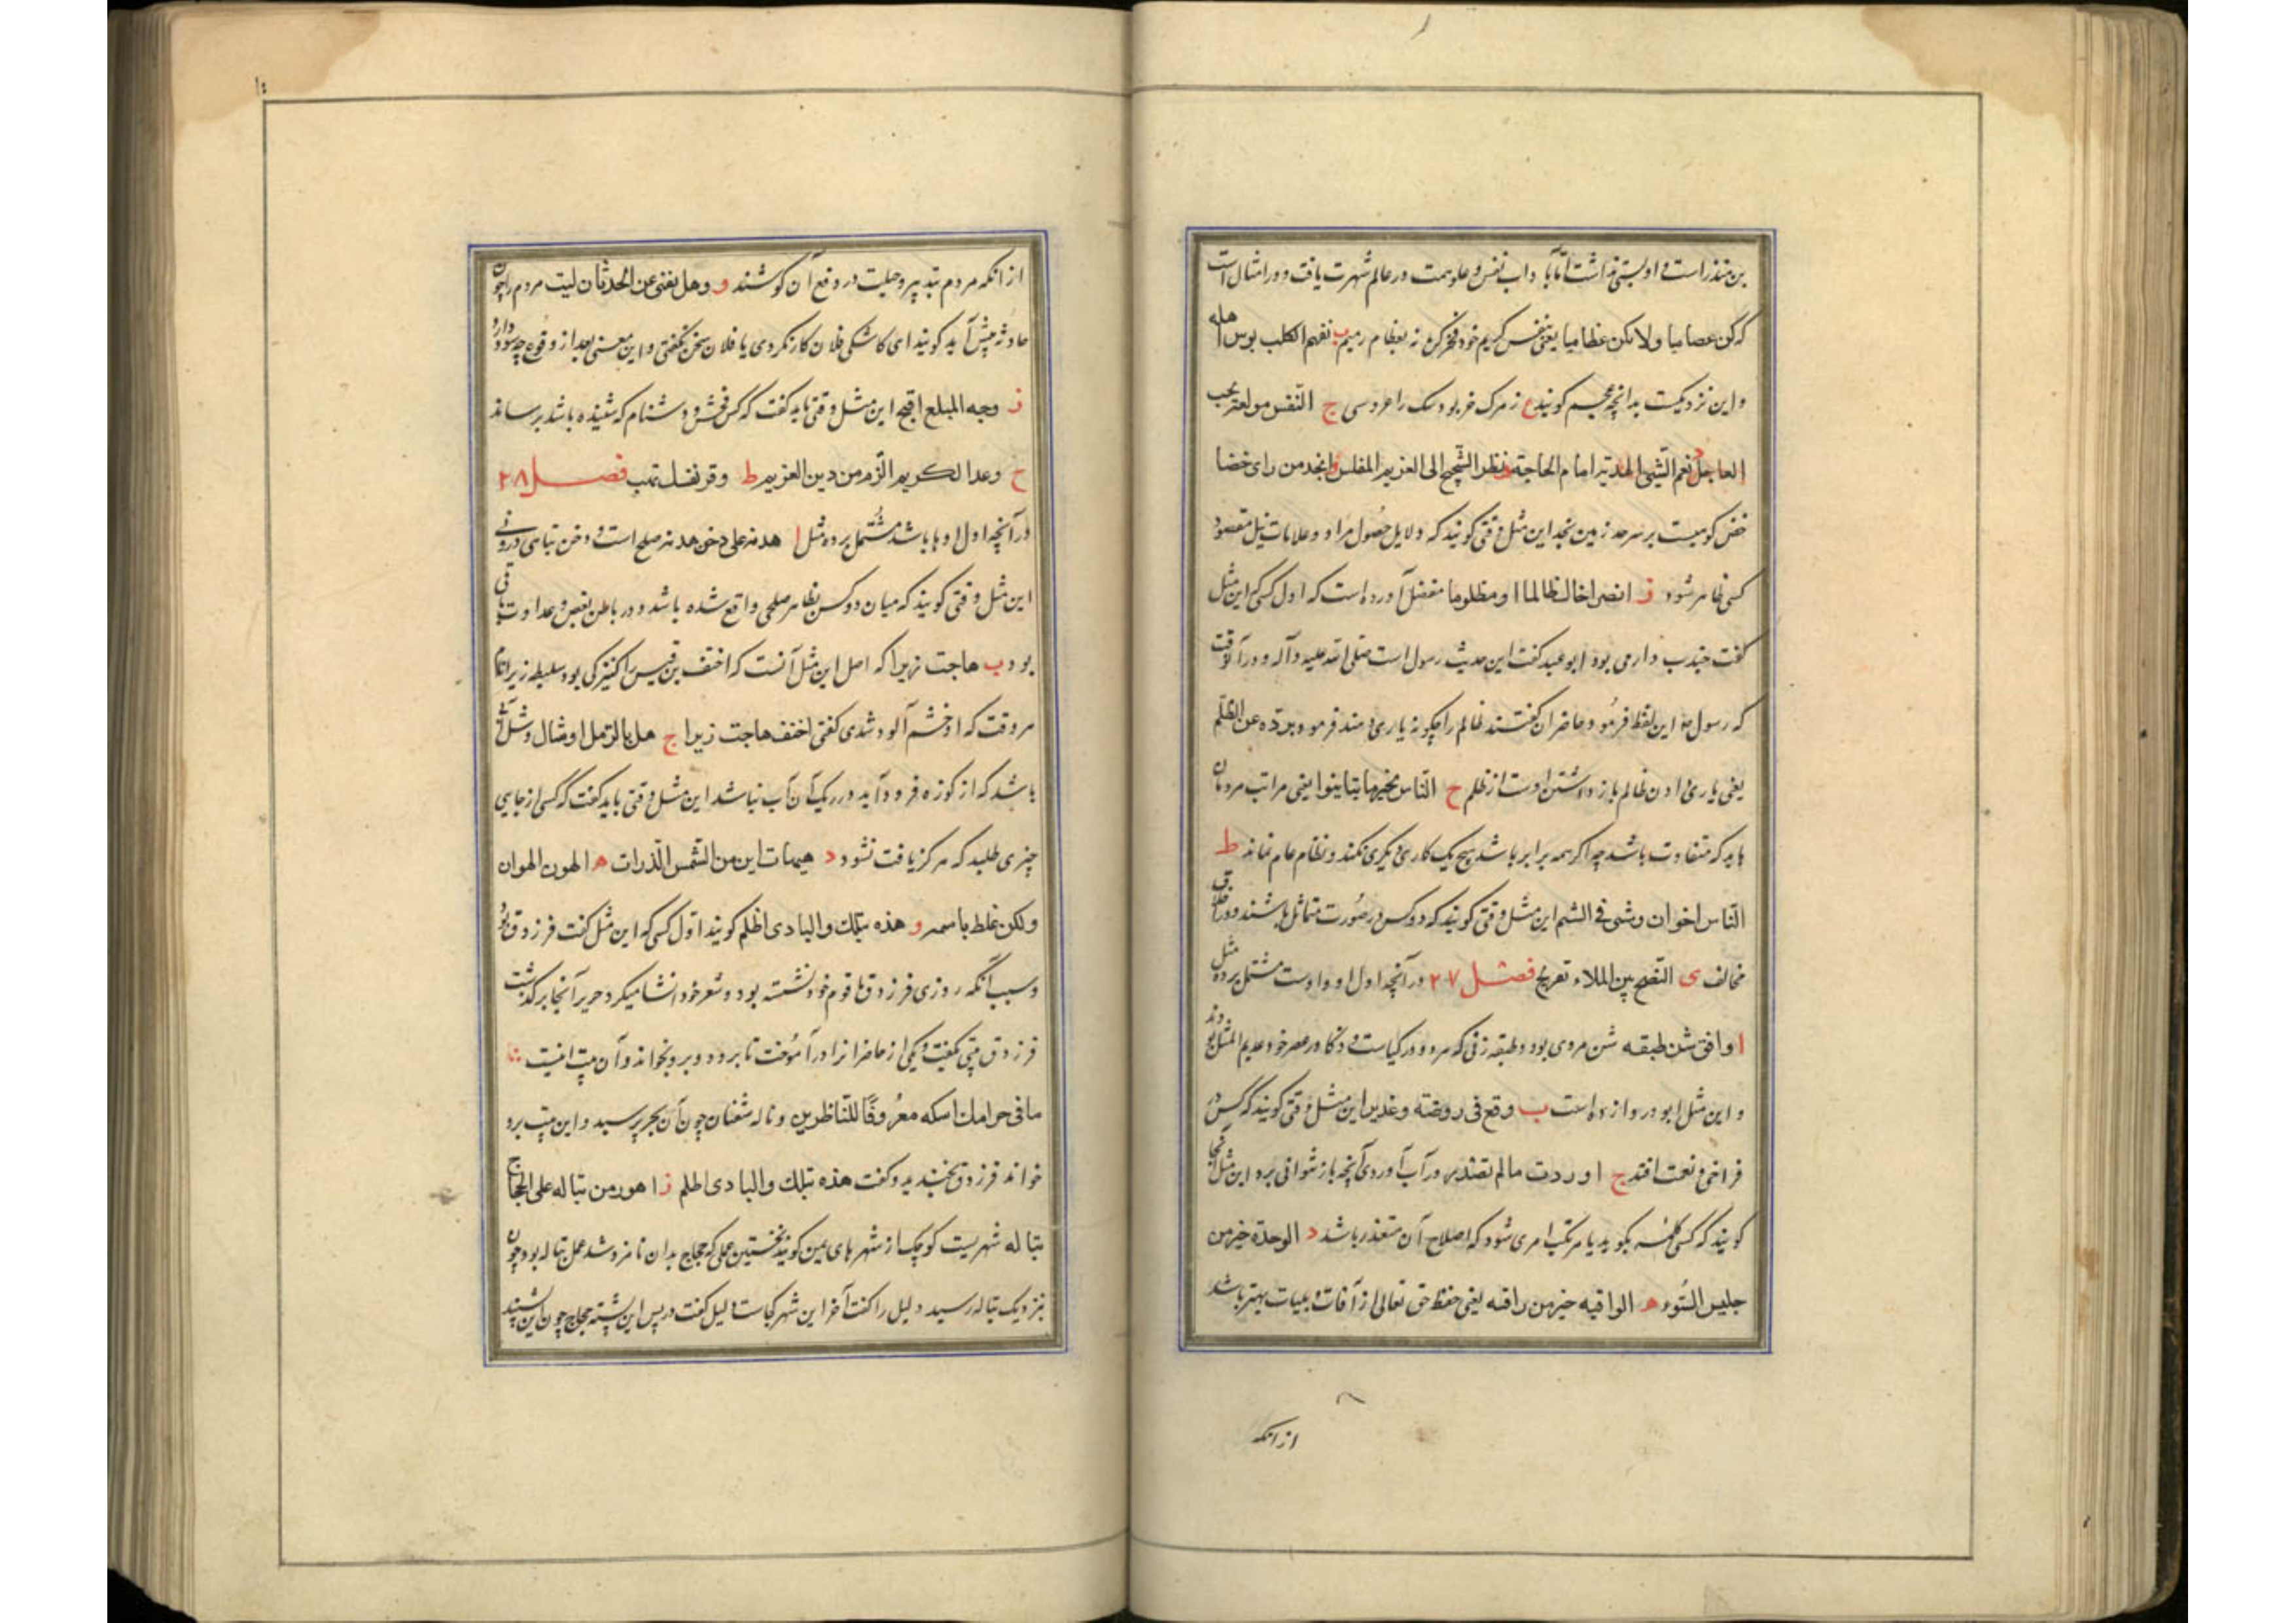 بن منذر است و او پستی نداشت اما بآداب نفس و علو همت در عالم شهرت یافت و در امثال است
که کن عصامیا ولا تکن عظامیا یعنی بنفس کریم خود فخر کن نه بعظام رمیم ب نعیم الکلب بوس اهله
و این نزدیکست بدانچه عجم کویند ع ز مرک خر بود سک را عروسی ج النفس مولعة بحب
العاجل د نعم الشیی الهدیة امام الحاجة ه نظر الشحیح الی الغریم المفلس و انجد من رای حضنا
حضن کوهیست بر سرحد زمین نجد این مثل وقتی کویند که دلایل حصول مراد و علامات نیل مقصود
کسی ظاهر شود ز انصر اخاک ظالما او مظلوما مفضل آورده است که اول کسی که این مثل
کفت جندب دارمی بود ابو عبید کفت این حدیث رسول است صلی الله علیه و آله و در آن وقت
که رسول این لفظ فرمود حاضران کفتند ظالم را چکونه یاری دهند فرمود برده عن الظلم
یعنی یاری دادن ظالم باز داشتن اوست از ظلم ح الناس بخیر ما تباینوا یعنی مراتب مردمان
باید که متفاوت باشد چه اکر همه برابر باشند هیچ یک کار دیکری نکند و نظام عالم نماند ط
الناس اخوان و شتی فی الشیم این مثل وقتی کویند که دو کس در صورت متماثل باشند و در اخلاق
مخالف ی النصح بین الملاء تقریع فصل ۲۷ در آنچه اول او واوست مشتمل بر ده مثل
ا وافق شن طبقه شن مردی بود و طبقه زنی که هر دو در کیاست و ذکا در عصر خود عدیم المثل بودند
و این مثل ابو در وازده است ب وقع فی روضة و غدیر این مثل وقتی کویند که کس در
فراخی و نعمت افتد ج اوردت ما لم تصدر در آب آوردی آنچه باز نتوانی برد این مثل آنجا
کویند که کسی کلمه بکوید یا مرتکب امری شود که اصلاح آن متعذر باشد د الوحدة خیر من
جلیس السوء ه الواقیه خیر من راقیه یعنی حفظ حق تعالی از آفات و بلیات بهتر باشد
از انکه
از انکه مردم بتدبیر و حیلت در دفع آن کوشند و وهل یغنی عن الحدثان لیت مردم را چون
حادثه پیش آید کویند ای کاشکی فلان کار نکردی یا فلان سخن نکفتی و این معنی بعد از وقوع چه سود دارد
ز وجه المبلغ اقبح این مثل وقتی باید کفت که کس فحش و دشنام که شنیده باشد برساند
ح وعد الکریم الزم من دین الغریم ط وقر نفسک تهب فصل ۲۸
در آنچه اول او ها باشد مشتمل بر ده مثل ا هدنة علی دخن هدنه صلح است و دخن تباهی درونی
این مثل وقتی کویند که میان دو کس بظاهر صلحی واقع شده باشد و در باطن بغض و عداوت باقی
بود ب هاجت زبرا که اصل این مثل آنست که احنف بن قیس را کنیزکی بود سلیطه زبرا نام
هر وقت که او خشم آلود شدی کفتی احنف هاجت زبرا ج هل بالرمل اوشال وشل آبی
باشد که از کوزه فرود آید و در ریک آن آب نباشد این مثل وقتی باید کفت که کسی از جایی
چیزی طلبد که هرکز یافت نشود د هیهات این من الشمس الذرات ه الهون الهوان
ولکن غلط باسمه و هذه بتلک والبادی اظلم کویند اول کسی که این مثل کفت فرزدق بود
و سبب آنکه روزی فرزدق با قوم خود نشسته بود و شعر خود انشا میکرد جریر آنجا برکذشت
فرزدق بیتی بکفت و یکی از حاضرانرا درآموخت تا برود و برو بخواند و آن بیت اینست
ما فی حرامک اسکه معروفا للناظرین و ناله شفتان چون آن بجریر رسید و این بیت برو
خواند فرزدق بخندید و کفت هذه بتلک والبادی اظلم ز اهون من تباله علی الحجاج
تباله شهریست کوچک از شهر های یمن کویند نخستین عملی که حجاج بدان نامزد شد عمل تباله بود چون
نزدیک تباله رسید دلیل را کفت آخر این شهر کجاست دلیل کفت در پس این پشته حجاج چون این شنید